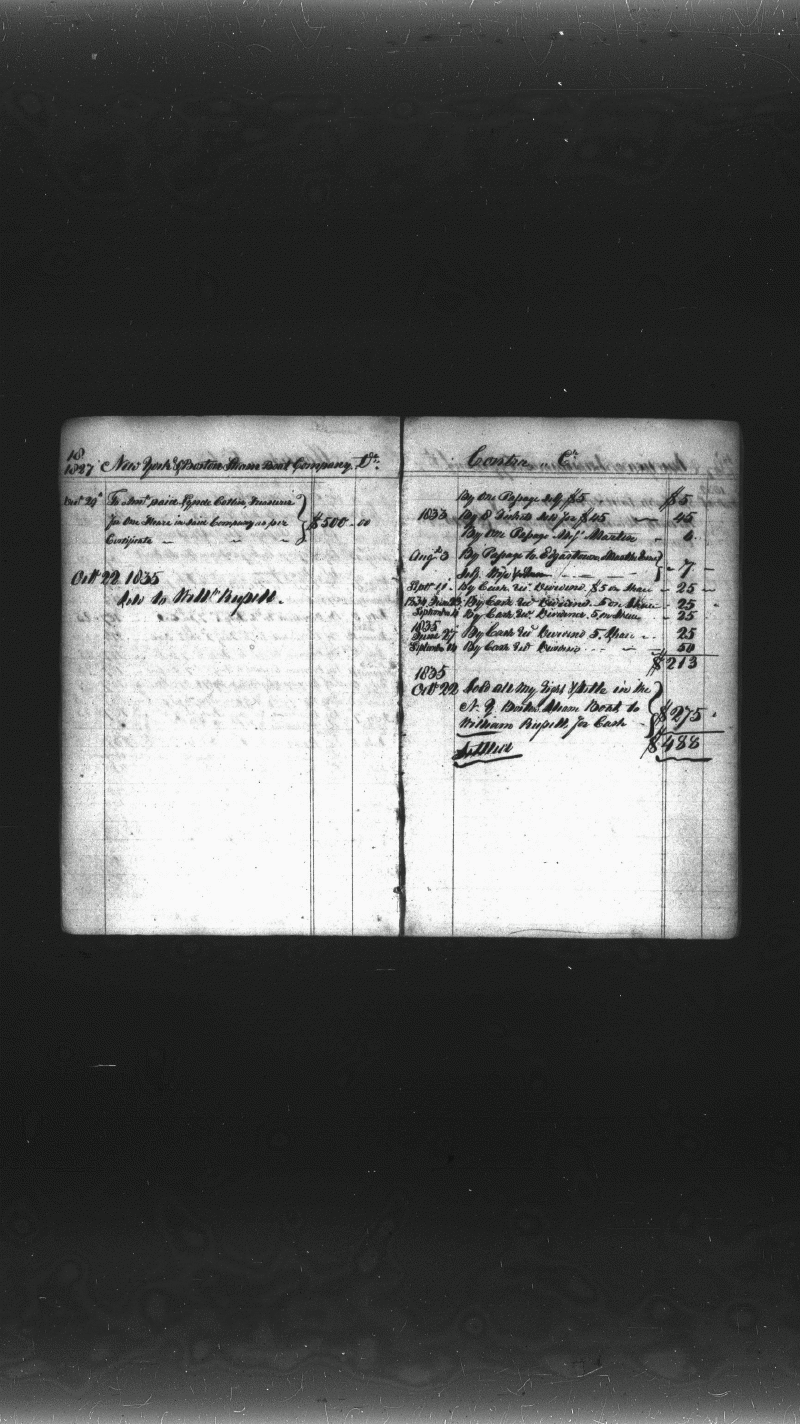 18
1827 New York & Boston Steam Boat Company. Dr.
To Amt paid Cottle, Treasurer
for One Share in said Company as per $500-00
Certificate
Oct 22 1835
Sold to Willm Russell.
Contra Cr
By One Passage self $5 $5
1833 By 8 Tickets sold for $45 45
By One Passage
Augt 3 By Passage to Edgartown
Self, Wife & 7
Sept 11 By Cash Recd Dividend $5 on Share 25
1834 By Cash Recd Dividend 5 on Share 25
September By Cash Recd Dividend, 5 on Share 25
1835
June 27 By Cash Recd Dividend 5. Share 25
September By Cash Recd Dividend 50
$213
1835
Oct 22 Sold all my right & title in the
N. Y. Boston Steam Boat to $275
William Russell for Cash
Settled $488